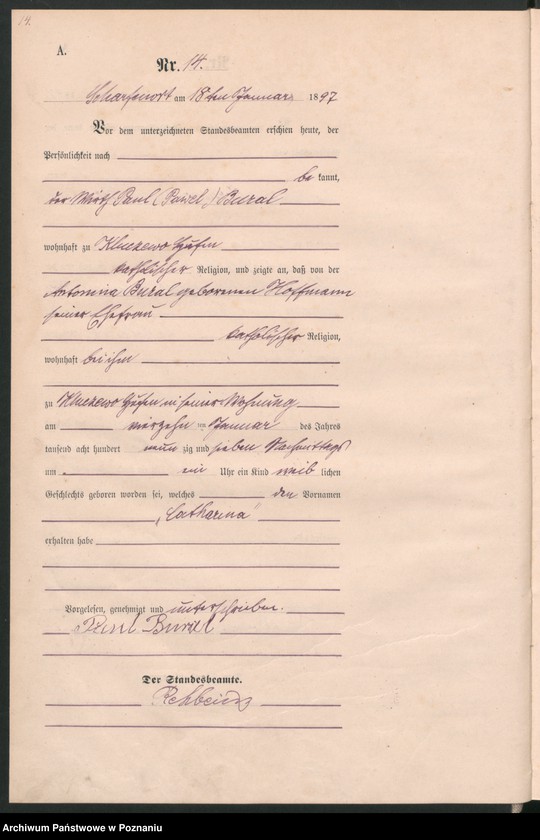 14.
A.
Nr. 14.
Scharfenort am 18ten Januar 1897
Vor dem unterzeichneten Standesbeamten erschien heute, der
Persönlichkeit nach
bekannt,
der Wirth Paul (Pawel) Bural
wohnhaft zu Kluczewo Hufen
katholischer Religion, und zeigte an, daß von der
Antonina Bural geborenen Hoffmann
seiner Ehefrau
katholischer Religion,
wohnhaft bei ihm
zu Kluczewo Hufen in seiner Wohnung
am vierzehn ten Januar des Jahres
tausend acht hundert neunzig und sieben Nachmittags
um ein Uhr ein Kind weiblichen
Geschlechts geboren worden sei, welches den Vornamen
„Catharina“
erhalten habe
Vorgelesen, genehmigt und unterschrieben.
Paul
Der Standesbeamte.
Archiwum Państwowe w Poznaniu